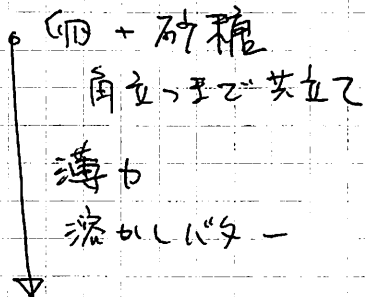 卵 + 砂糖
角立つまで共立て
薄力
溶かしバター